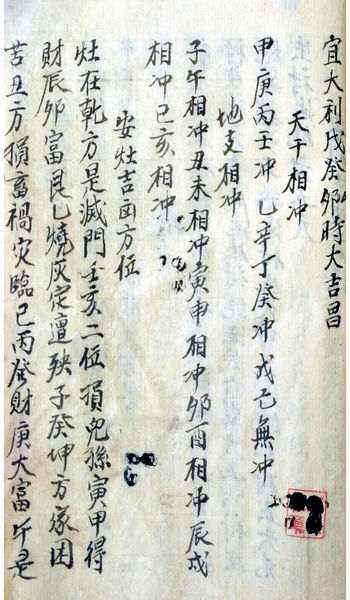 宜大利戊癸卯時大吉昌
天干相冲
甲庚丙壬冲乙辛丁癸冲戊己無冲
地支相冲
子午相冲丑未相冲寅申相冲卯酉相冲辰戌
相冲巳亥相冲
安灶吉凶方位
灶在乾方是滅門壬亥二位損兒孫寅甲得
財辰卯富艮乙燒灰定遭殃子癸坤方家困
苦丑方損畜禍灾臨巳丙發財庚大富午是